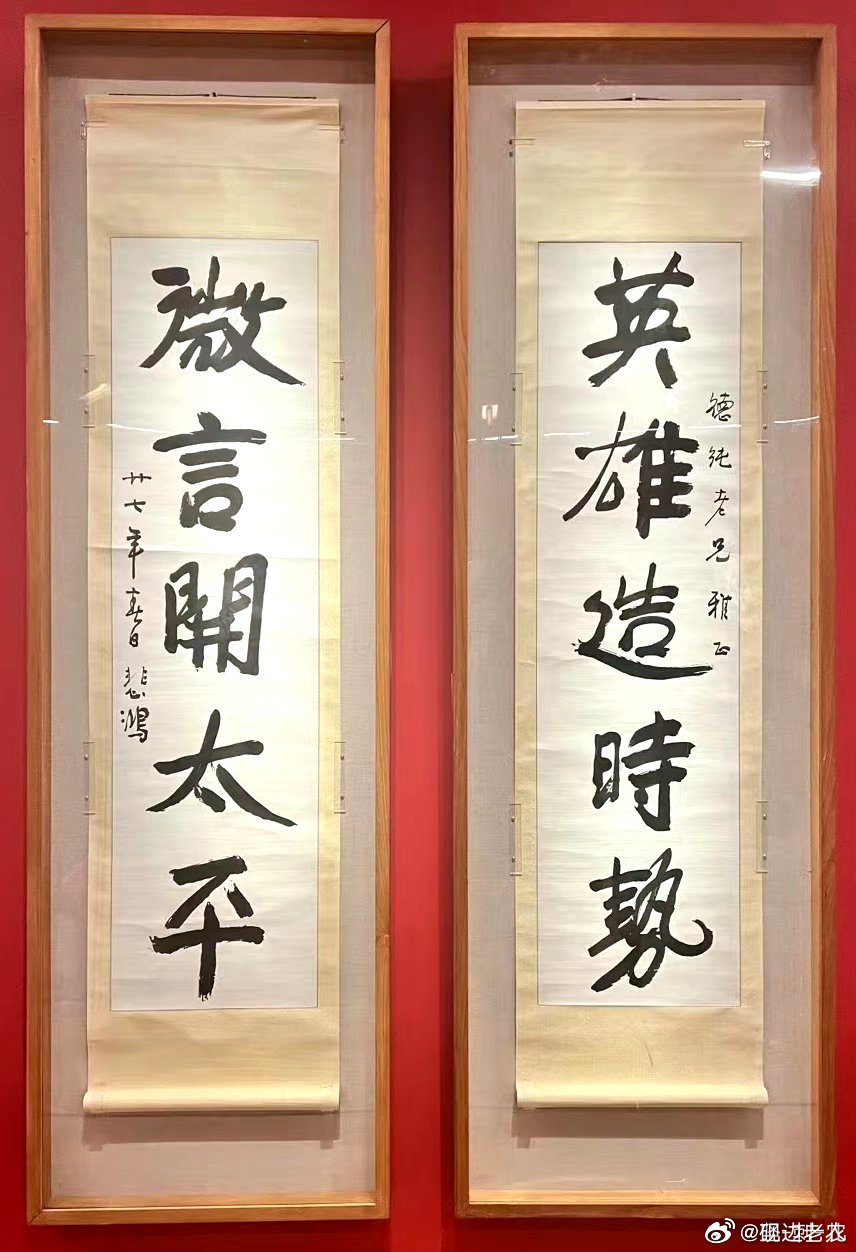 英雄造時勢
德純老兄雅正
微言開太平
廿七年春日 悲鴻